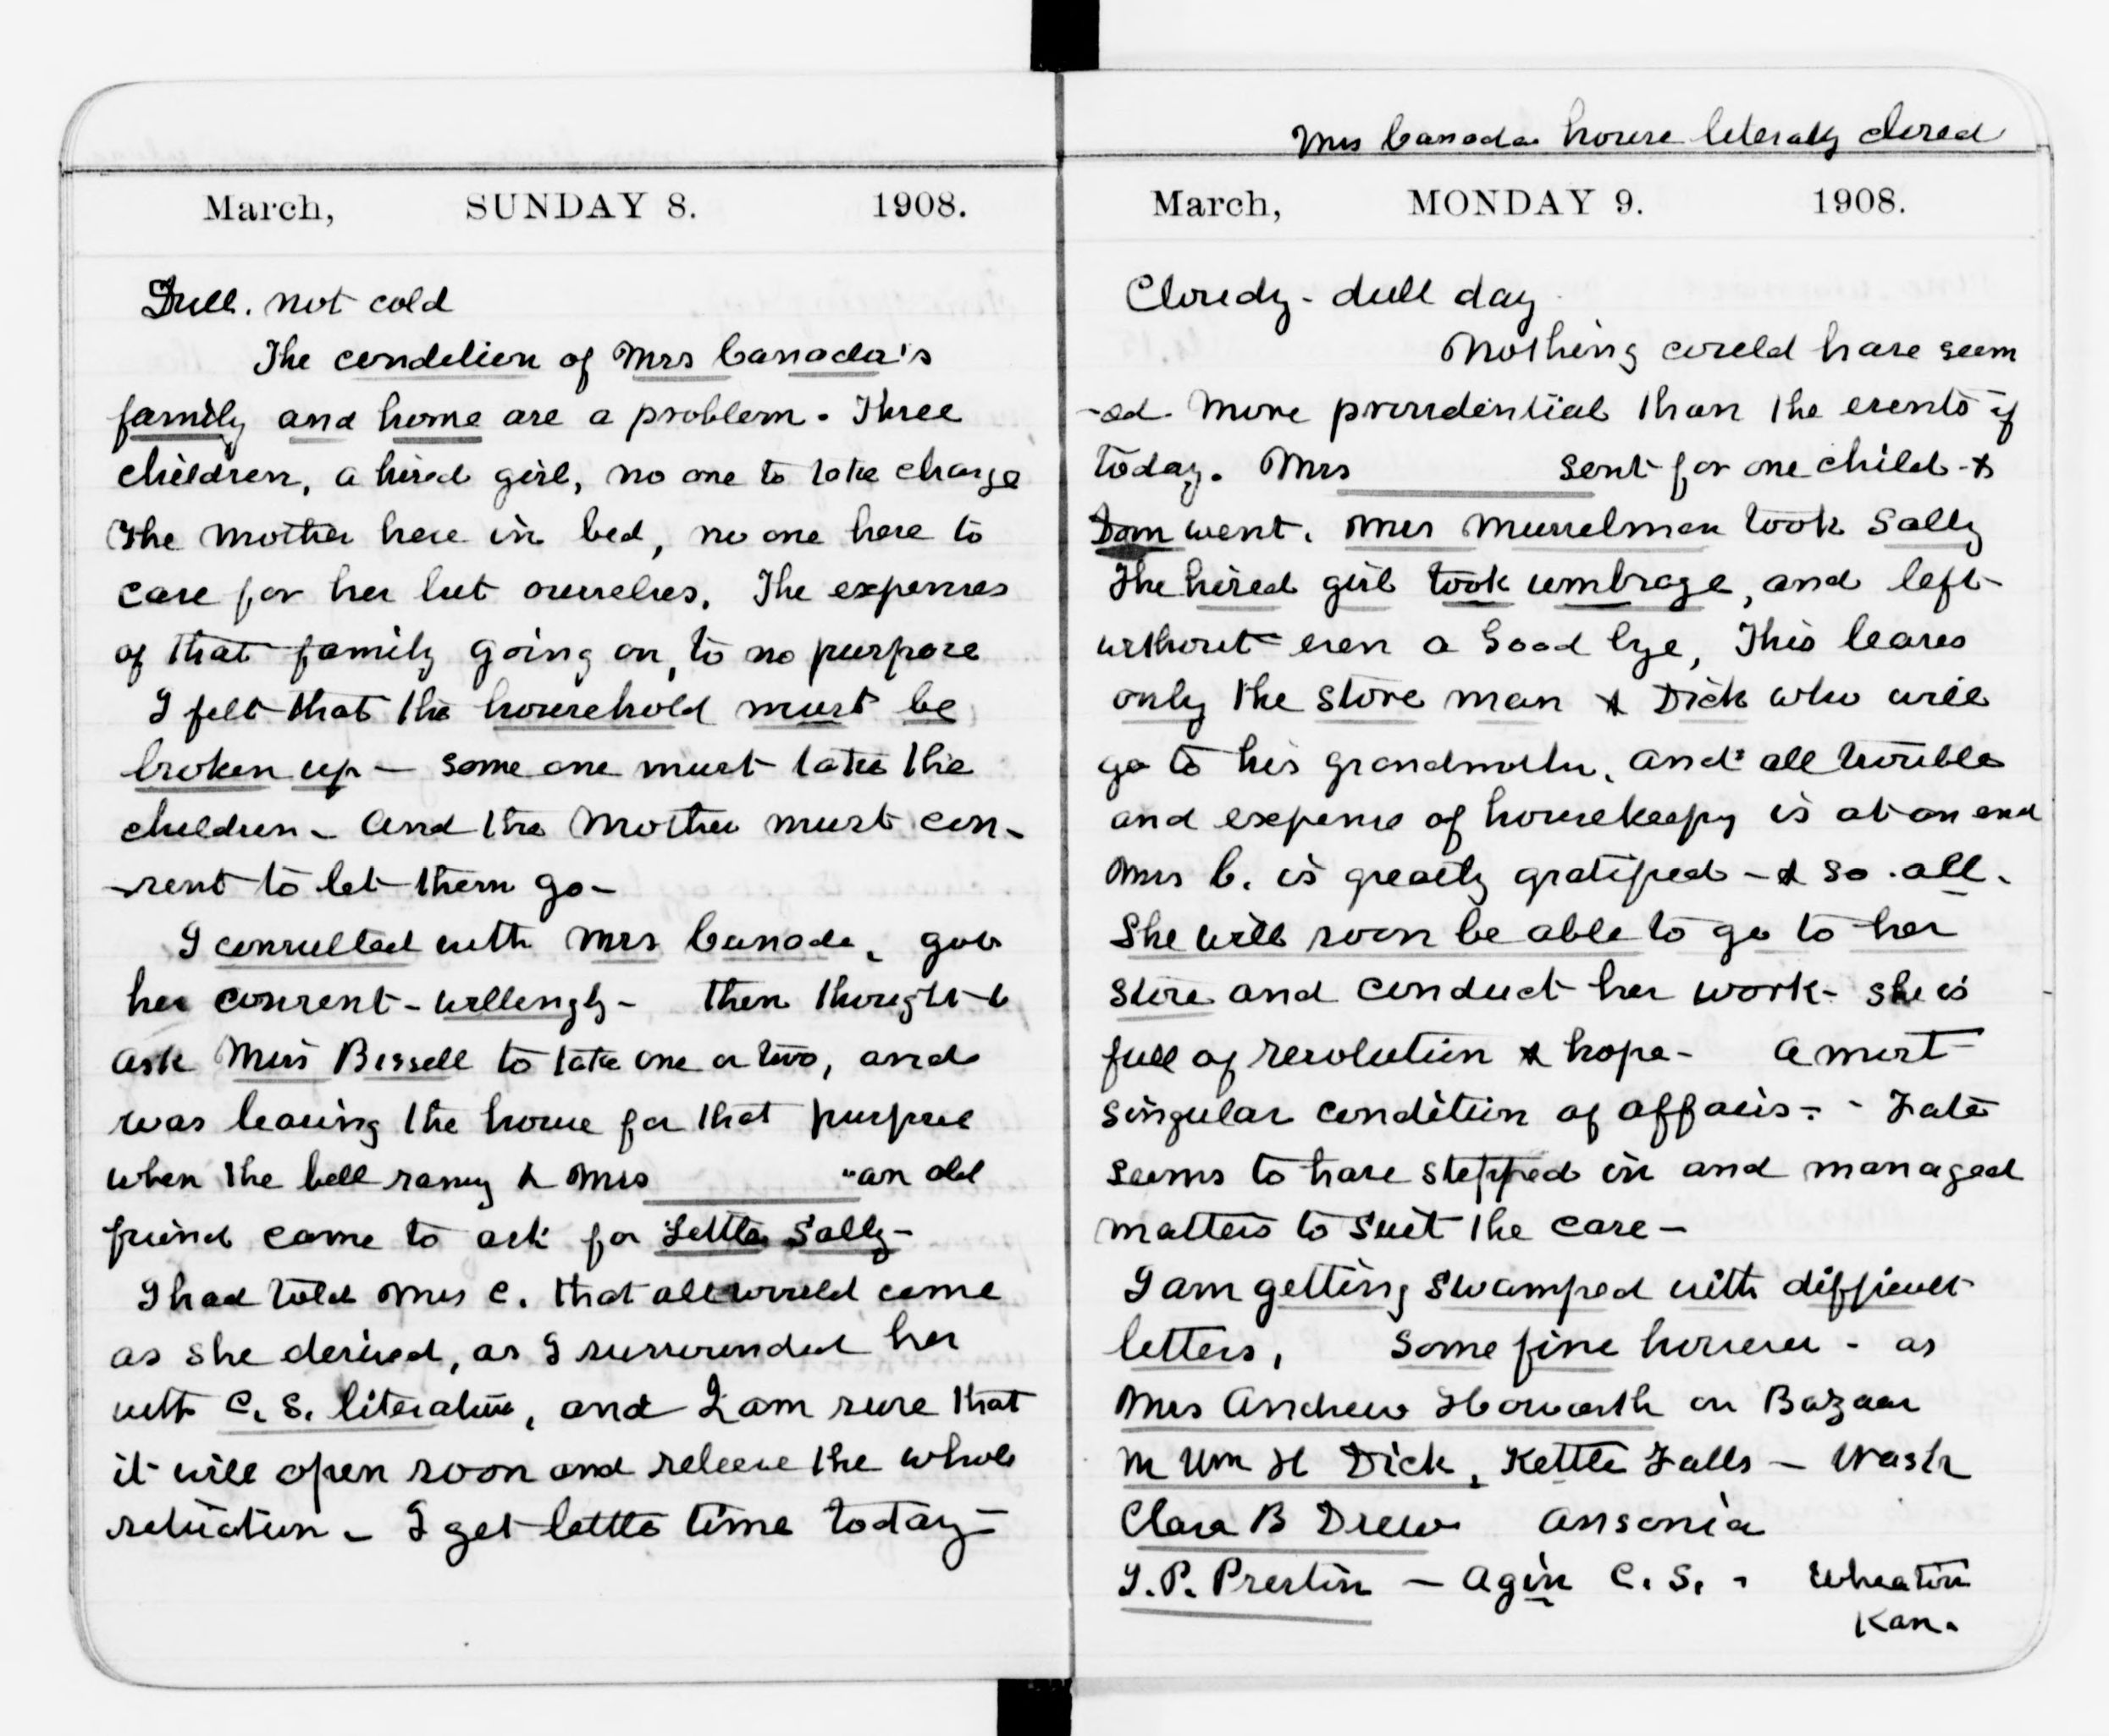 March, SUNDAY 8. 1908.
Dull. not cold
The condition of Mrs Canada's
family and home are a problem. Three
children, a hired girl, no one to take charge
The Mother here in bed, no one here to
care for her but ourselves. The expenses
of that family going on, to no purpose
I felt that the household must be
broken up — some one must take the
children — and the Mother must con-
-sent to let them go —
I consulted with Mrs Canada, got
her consent - willingly - then thought to
ask Miss Bissell to take one or two, and
was leaving the house for that purpose
when the bell rang & Mrs ______ "an old
friend came to ask for Little Sally -
I had told Mrs C. that all would come
as she desired, as I surrounded her
with C. S. literature, and I am sure that
it will open soon and relieve the whole
situation — I get little time today -
Mrs Canada house literaly closed
March, MONDAY 9. 1908.
Cloudy - dull day
Nothing could have seem
-ed more providential than the events of
today. Mrs ______ sent for one child - &
Dom went. Mrs Musselman took Sally
The hired girl took umbrage, and left
without even a Good bye, This leaves
only the store man & Dick who will
go to his grandmother. and all trouble
and expense of housekeepg is at an end
Mrs C. is greatly gratified - & so . all.
She will soon be able to go to her
store and conduct her work - she is
full of resolution & hope - A most
singular condition of affairs - - Fate
seems to have stepped in and managed
matters to suit the case —
I am getting swamped with difficult
letters, some fine however - as
Mrs Andrew Howarth on Bazaar
M Wm H Dick, Kettle Falls — Wash
Clara B Drew Ansonia
J. P. Preston — Agin C. S. - Wheaton
Kan.